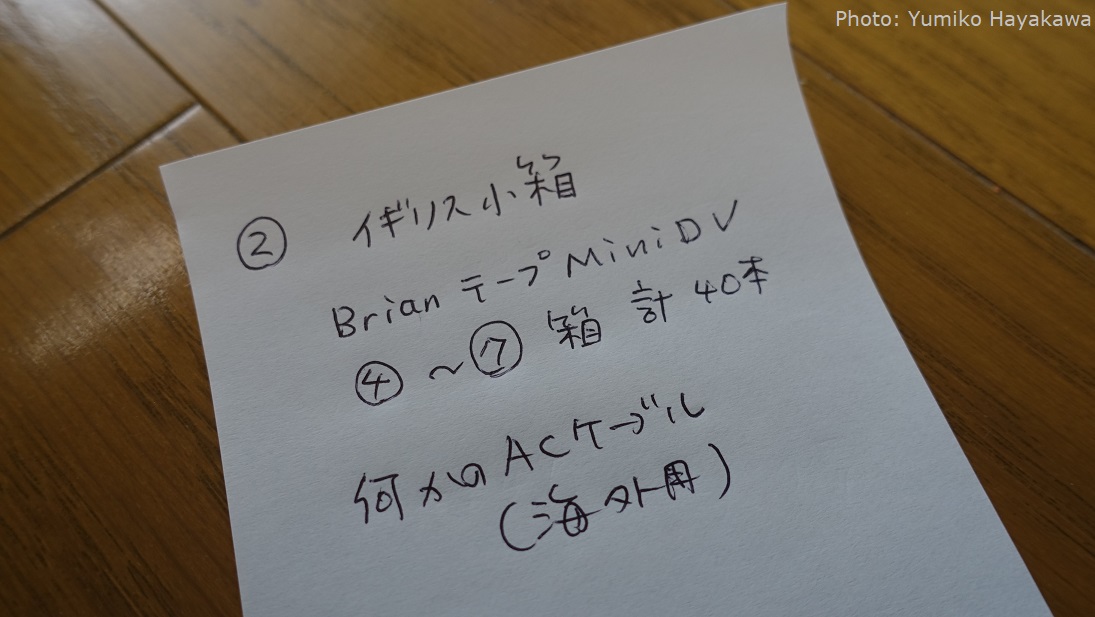 Photo: Yumiko Hayakawa
② イギリス小箱
Brian テープ MiniDV
④〜⑦ 箱 計 40本
何かの ACケーブル
(海外用)